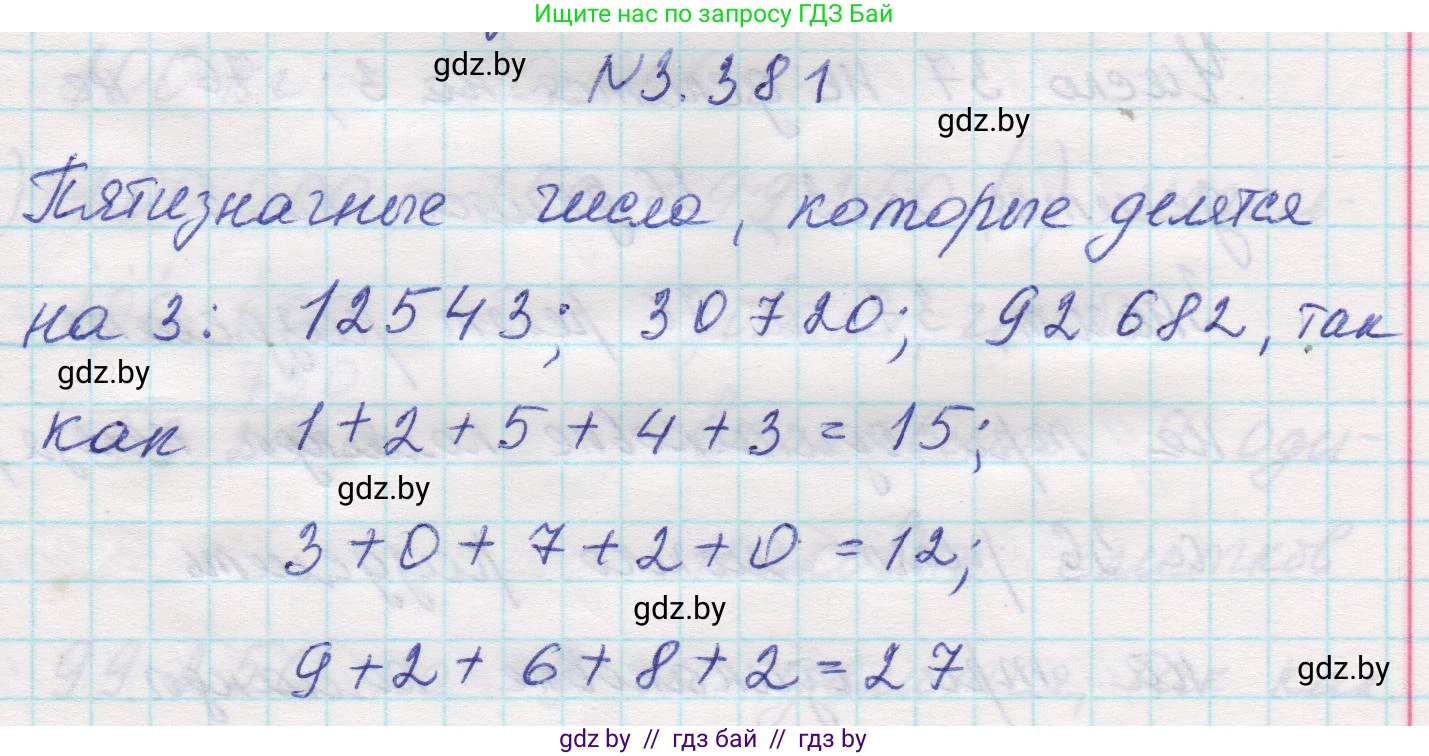 Ищите нас по запросу ГДЗ Бай
gdz.by
N3.381
gdz.by
Пятизначные числа, которые делятся
на 3: 12543; 30720; 92682, так
gdz.by
как 1+2+5+4+3=15;
gdz.by
3+0+7+2+0=12;
gdz.by
9+2+6+8+2=27
gdz.by
gdz by // гдз бай // гдз by